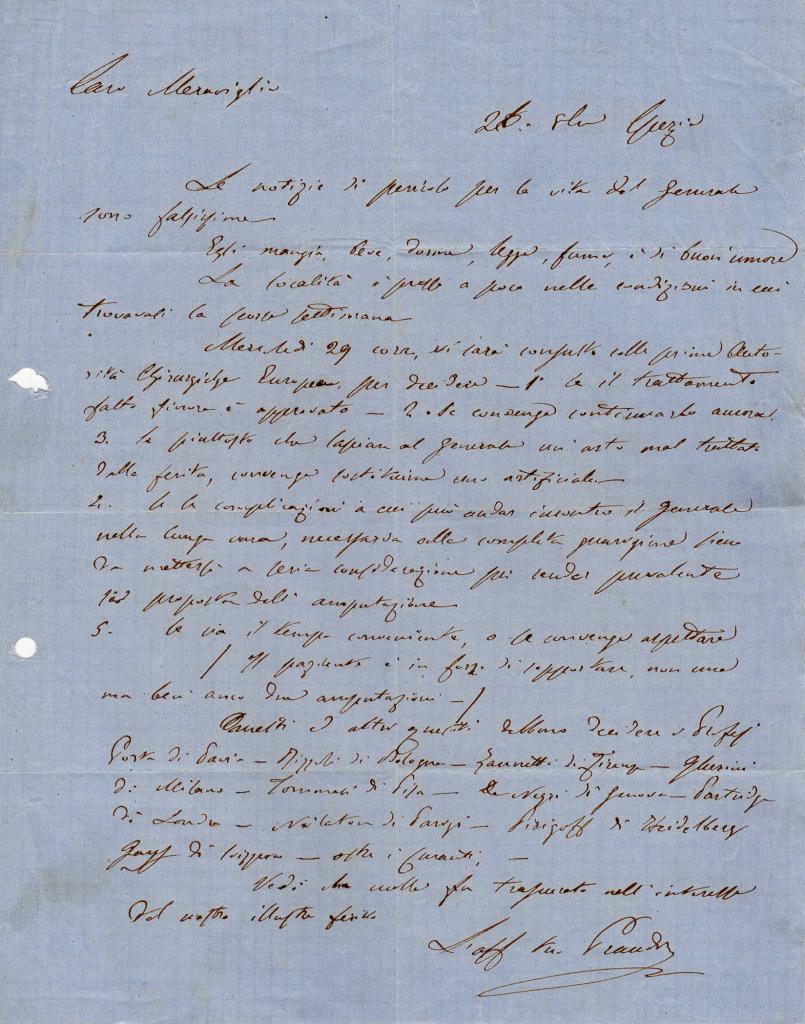 Caro Meraviglia
Spezia
Le notizie di pericolo per la vita del Generale
sono falsissime
Egli mangia, beve, dorme, legge, fuma, è di buon umore
La località è presso a poco nelle condizioni in cui
trovavasi la scorsa settimana
Mercoledi 29 corr, vi sarà consulto colle prime Auto-
rità Chirurgiche Europee, per decidere – 1° Se il trattamento
fatto finora è approvato – 2. Se convenga continuarlo ancora.
3. Se piuttosto che lasciare al Generale un'arto mal trattato
dalla ferita, convenga sostituirne uno artificiale –
4. Se le complicazioni a cui può andar incontro il Generale
nella lunga cura, necessaria alla completa guarigione siano
da mettersi a seria considerazione per render prevalente
la proposta dell'amputazione
5. Se sia il tempo conveniente, o se convenga aspettare
/ Il paziente è in forze di sopportare, non una
ma ben anco due amputazioni – /
Questi ed altri quesiti debbono decidere i Profess
Porta di Pavia – Rizzoli di Bologna – Zannetti di Firenze – Gherini
di Milano – Tommasi di Pisa – De Negri di Genova – Partridge
di Londra – Nélaton di Parigi – Pirigoff di Heidelberg
di Svizzera – oltre i Curanti, –
Vedi che nulla fu trascurato nell'interesse
del nostro illustre ferito
L'aff tuo Prandina